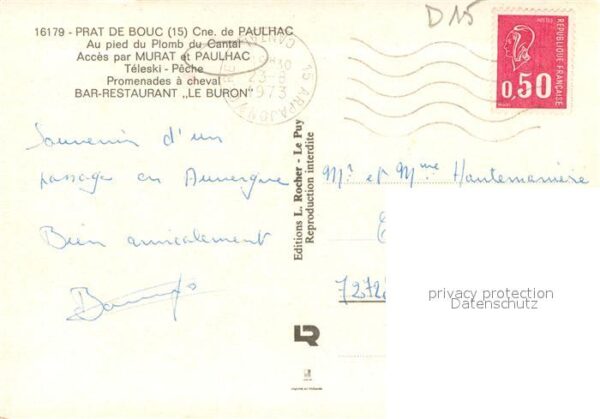 16179 - PRAT DE BOUC (15) Cne. de PAULHAC
Au pied du Plomb du Cantal
Accès par MURAT et PAULHAC
Téleski - Pêche
Promenades à cheval
BAR-RESTAURANT „LE BURON"
D15
15 ARPAJON
CANTAL
1973
POSTES
REPUBLIQUE FRANÇAISE
0,50
Souvenir d'un
passage en Auvergne
Bien amicalement
Editions L. Rocher - Le Puy
Reproduction interdite
Mr et Mme Hautemanière
7272
privacy protection
Datenschutz